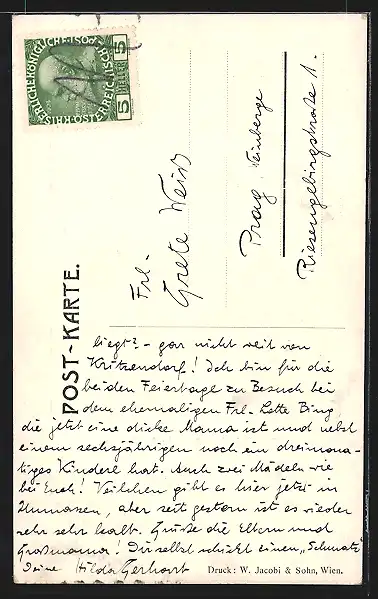 KAISERLICHE KÖNIGLICHE ÖSTERREICHISCHE POST
5 HELLER 5
POST-KARTE.
Frl.
Grete Weiss
Prag Weinberge
Riesengebirgstraße 1.
liegt? - gar nicht weit von
Kritzendorf! Ich bin für die
beiden Feiertage zu Besuch bei
dem ehemaligen Frl. Lotte Bing
die jetzt eine dicke Mama ist und nebst
einem sechsjährigen noch ein dreimona-
tiges Kinderl hat. Auch zwei Mädeln wie
bei Euch! Veilchen gibt es hier jetzt in
Unmassen, aber seit gestern ist es wieder
sehr sehr kalt. Grüße die Eltern und
Großmama! Dir selbst schickt einen „Schmatz"
Deine Hilda Gerhart
Druck: W. Jacobi & Sohn, Wien.